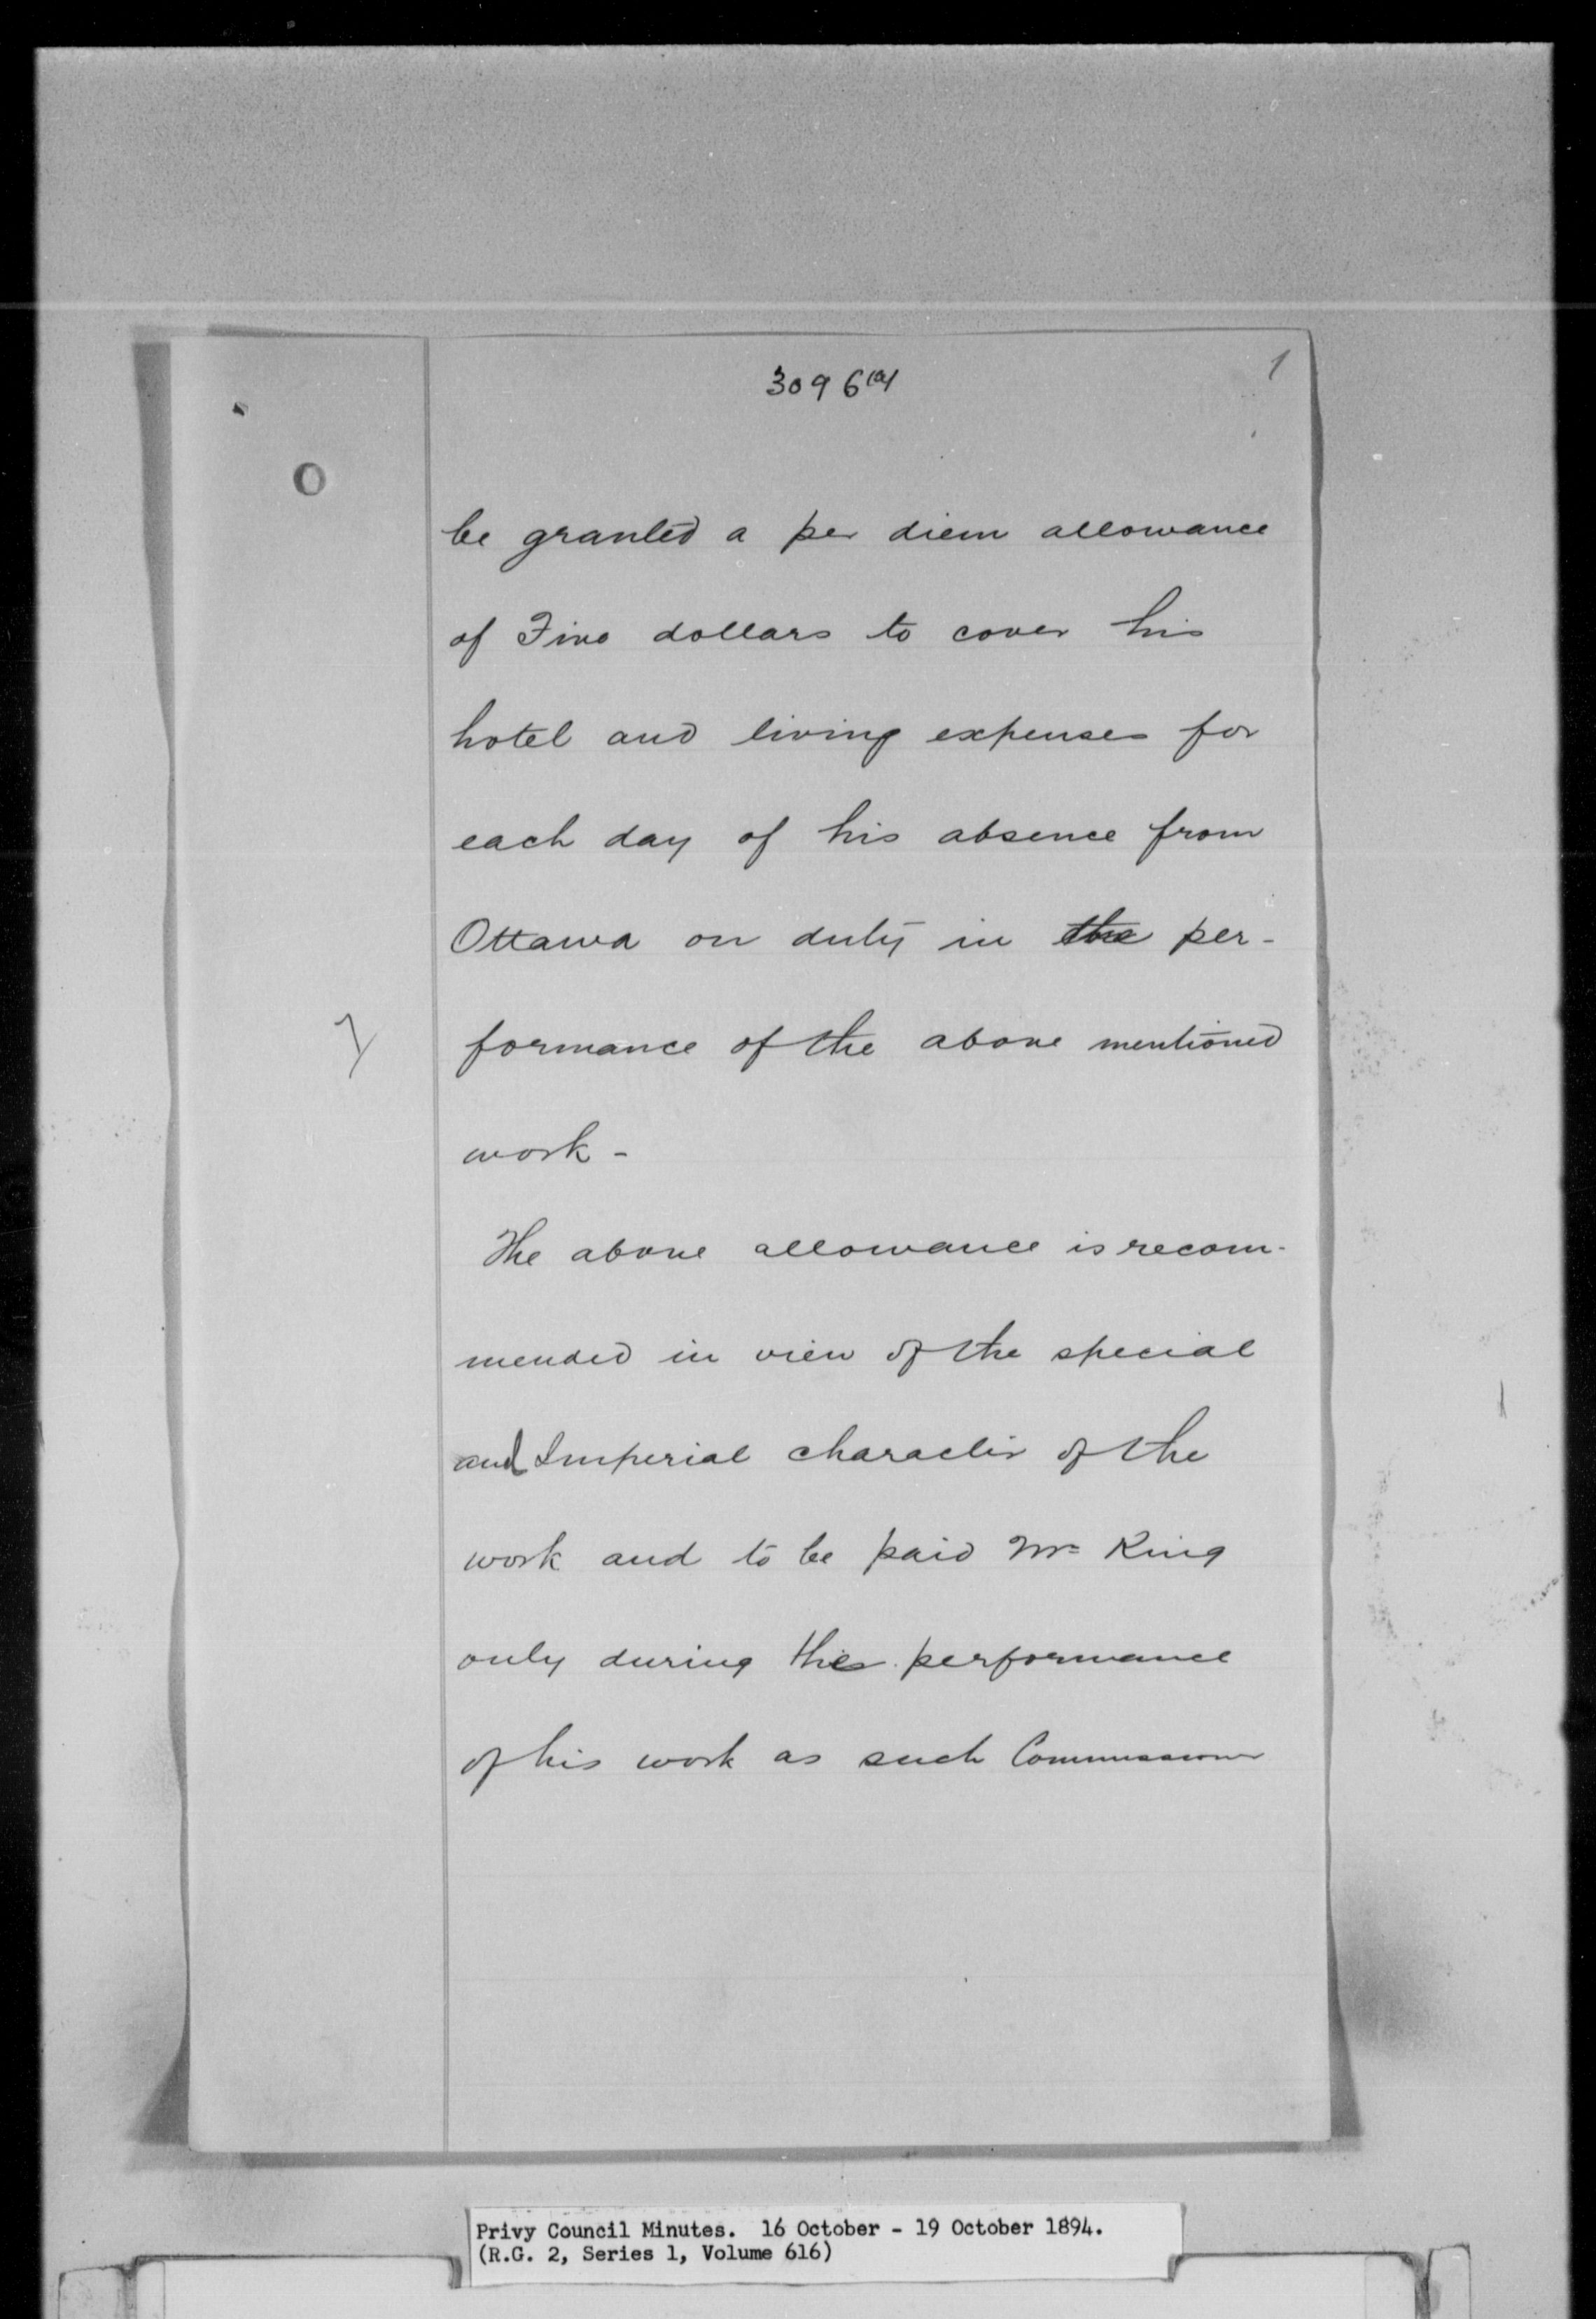 3096(a) 1
be granted a per diem allowance
of Five dollars to cover his
hotel and living expenses for
each day of his absence from
Ottawa on duty in the per-
formance of the above mentioned
work -
The above allowance is recom-
mended in view of the special
and Imperial character of the
work and to be paid Mr King
only during the performance
of his work as such Commissioner
Privy Council Minutes. 16 October - 19 October 1894.
(R.G. 2, Series 1, Volume 616)